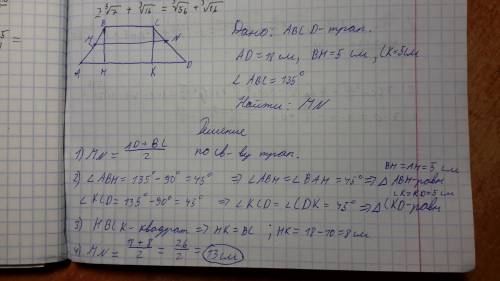 2∛7 + ∛16 = ∛56 + ∛16
B C
M N
A H K D
Дано: ABCD-трап.
AD=18 см, BH=5 см, CK=5см
∠ABC=135°
Найти: MN
Решение
1) MN = (AD+BC)/2 по св-ву трап.
BH=AH=5 см
2) ∠ABH=135°-90°=45° ⇒ ∠ABH=∠BAH=45° ⇒ △ABH-равн
CK=KD=5 см
∠KCD=135°-90°=45° ⇒ ∠KCD=∠CDK=45° ⇒ △CKD-равн
3) HBCK-квадрат ⇒ HK=BC ; HK=18-10=8см
4) MN = (18+8)/2 = 26/2 = 13 см